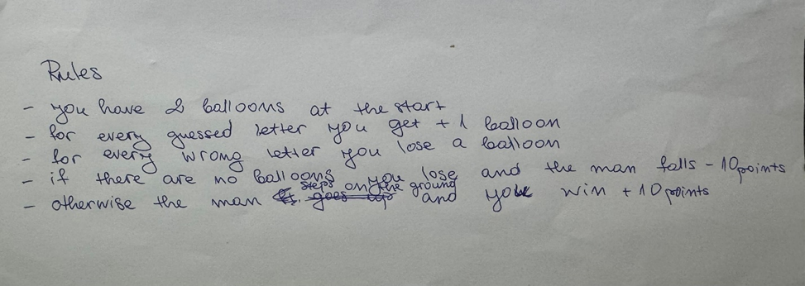 Rules
- you have 2 balloons at the start
- for every guessed letter you get + 1 balloon
- for every wrong letter you lose a balloon
- if there are no balloons you lose and the man falls - 10 points
- otherwise the man steps on the ground and you win + 10 points